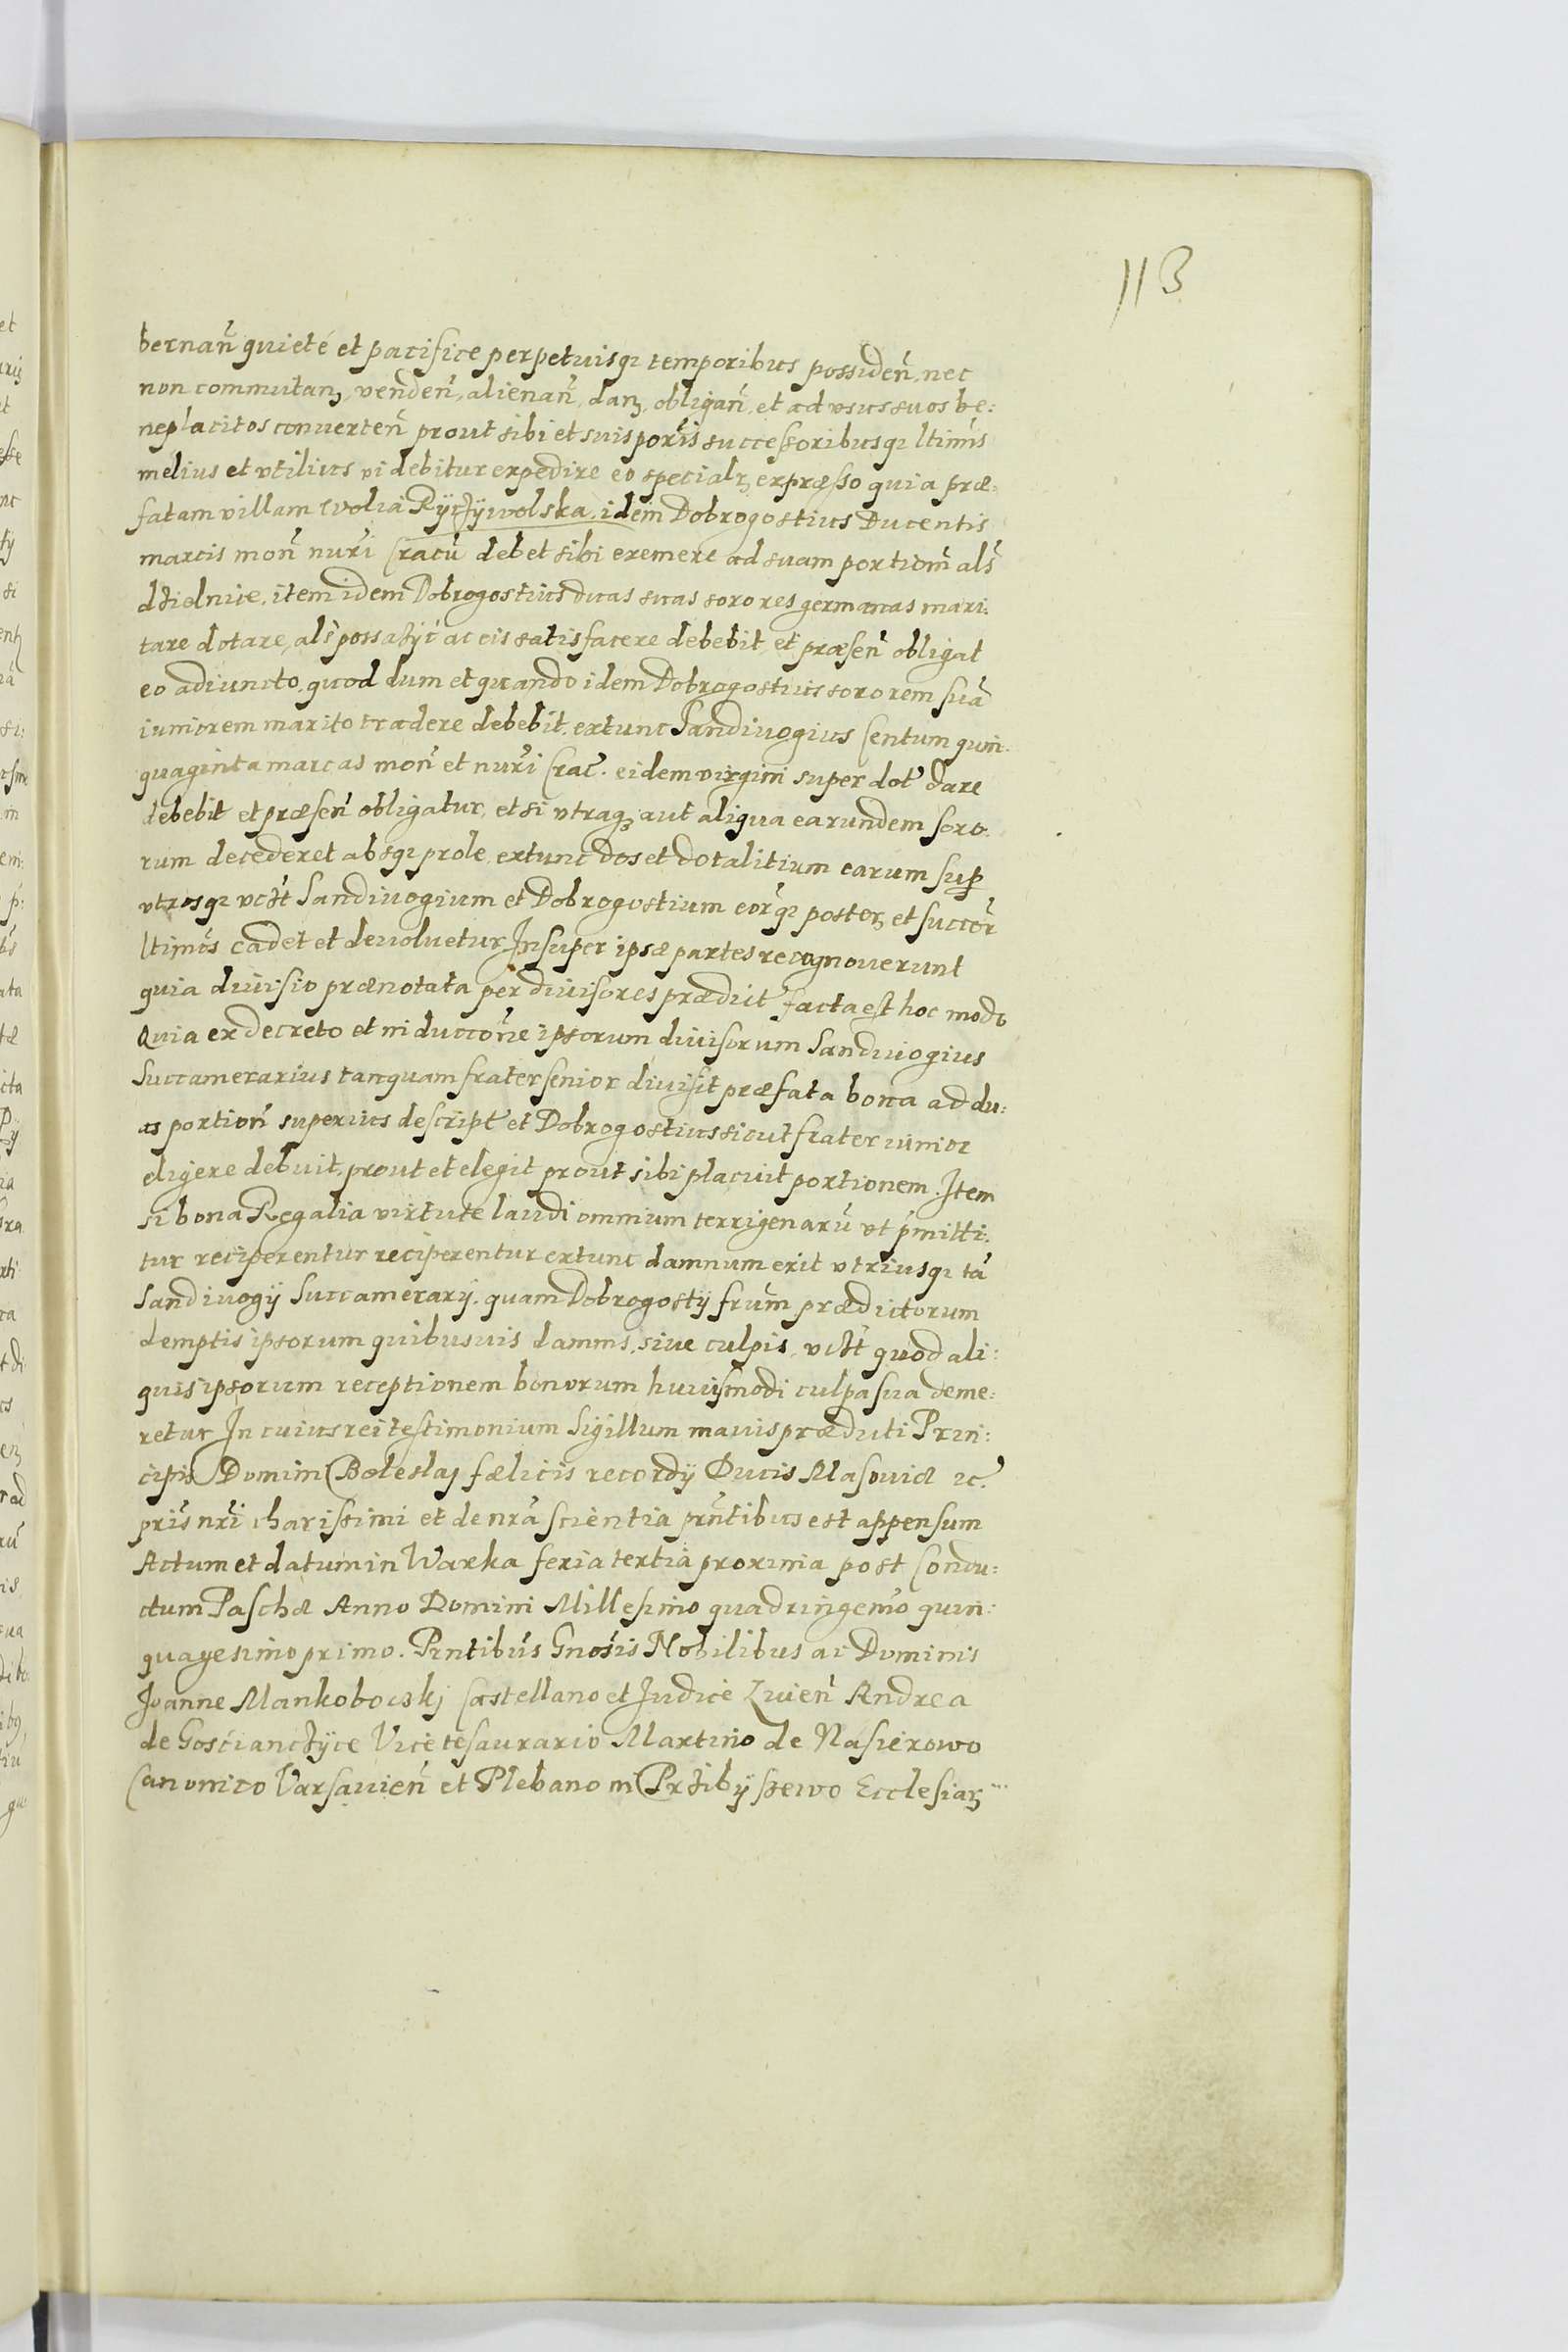 113
bernan̄ quieté et pacifice perpetuisqꝫ temporibus possiden̄, nec
non commutanꝫ, venden̄, alienan̄, danꝫ, obligan̄, et ad usus suos be:
neplacitos conuerten̄ prout sibi et suis poris̄ successoribusqꝫ ltimis
melius et utilius videbitur expedire eo specialꝫ expræsso quia præ:
fatam villam Wolia Ryczywolska, idem Dobrogostius Ducentis
marcis mon̄ nur̄i Cracū debet sibi exemere ad suam portiom̄ als̄
dzielnice, item idem Dobrogostius duas suas sorores germanas mari:
tare dotare, als̄ possazyc ac eis satisfacere debebit, et præsen̄ obligat
eo adiuncto, quod dum et quando idem Dobrogostius sororem suā
iuniorem marito tradere debebit, extunc Sandiuogius Centum quin:
quaginta marcas mon̄ et nur̄i Crac̄. eidem virgini super dot̄ dare
debebit et præsen̄ obligatur, et si utraqꝫ aut aliqua earundem soro:
rum decederet absqꝫ prole, extunc dos et dotalitium earum sup
utrosqꝫ vcꝫt Sandiuogium et Dobrogostium eorqꝫ posterꝫ et succor̄
ltimos cadet et deuoluetur Insuper ipsæ partes recognouerunt
quia diuisio prænotata per diuisores prædict̄ facta est hoc modo
Quia ex decreto et inductōne ipsorum diuisorum Sandiuogius
Succamerarius tanquam frater senior diuisit præfata bona ad du:
as portion̄ superius descript̄ et Dobrogostius sicut frater iunior
eligere debuit, prout et elegit prout sibi placuit portionem. Item
si bona Regalia virtute laudi omnium terrigenarū ut p̄mitti:
tur reciperentur reciperentur extunc damnum erit utriusqꝫ tā
Sandiuogÿ Succamerarÿ. quam Dobrogostÿ frūm prædictorum
demptis ipsorum quibusuis damnis, siue culpis, vcꝫt quod ali:
quis ipsorum receptionem bonorum huiusmodi culpa sua deme:
retur In cuius rei testimonium Sigillum maius prædicti Prin:
cipis Domini Boleslaj fælicis recordÿ Ducis Masouiæ ꝛc.
pris̄ nr̄i charissimi et de nr̄a scientia prn̄tibus est appensum
Actum et datum in Warka feria tertia proxima post Condu:
ctum Paschæ Anno Domini Millesimo quadringenmo quin:
quagesimo primo. Prntibus̄ Gnosis̄ Nobilibus ac Dominis
Joanne Mankobowskj Castellano et Judice Zuien̄ Andrea
de Gosciancżÿce Vicetesaurario Martino de Nasierowo
Canonico Varsauien̄ et Plebano in Przibÿszewo Ecclesiarꝫ